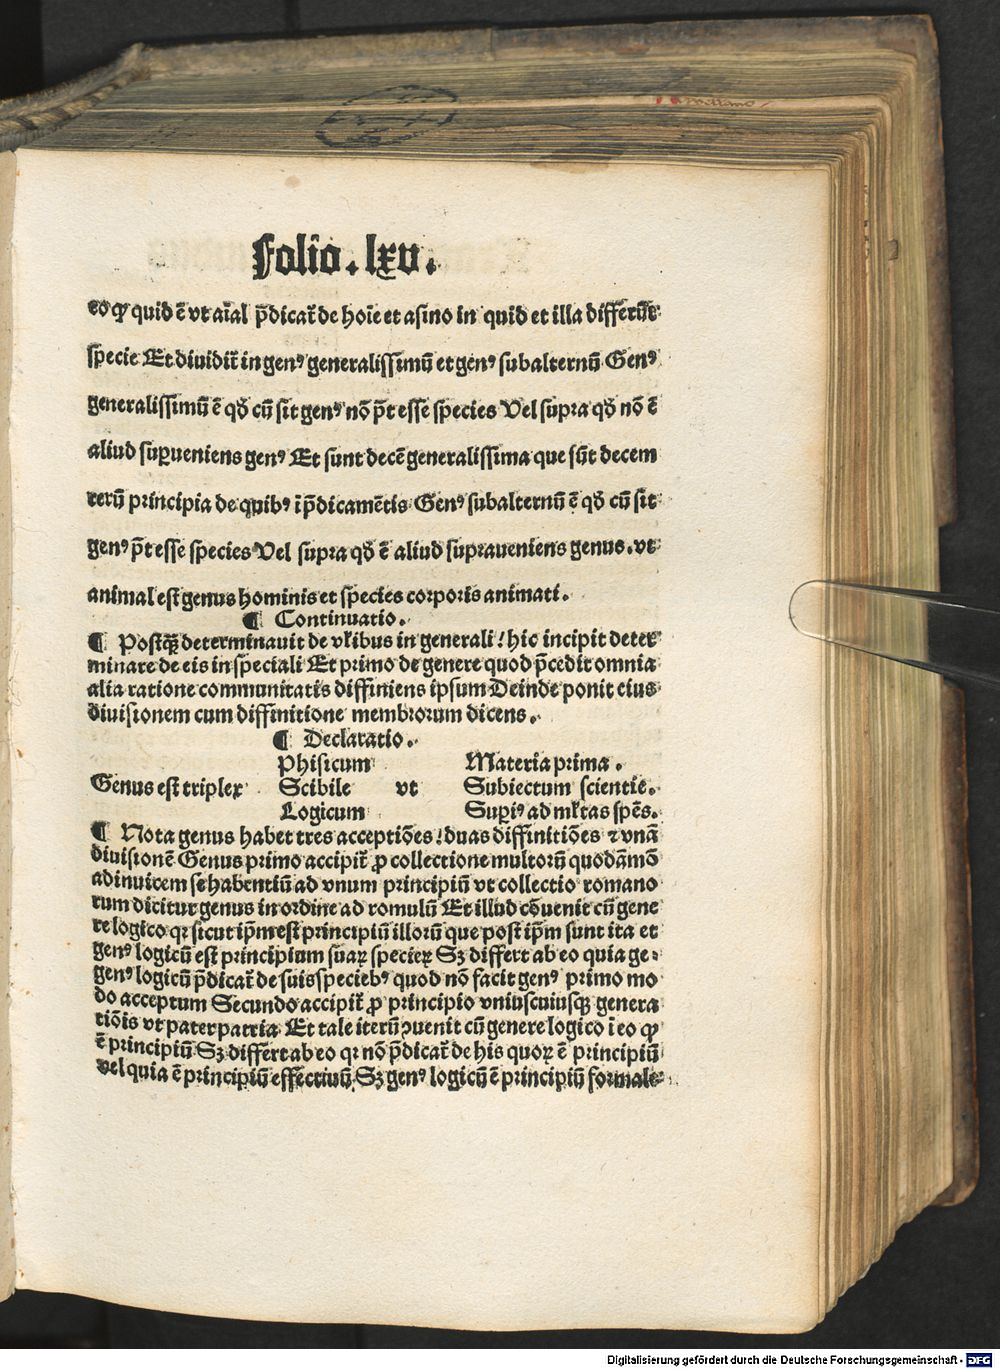 Folio. lxv.
eo ꝙ quid ē vt aīal p̄dicat̄ de hoīe et asino in quid et illa differūt
specie Et diuidit̄ in genꝰ generalissimū et genꝰ subalternū Genꝰ
generalissimū ē qd̄ cū sit genꝰ nō pōt esse species Vel supra qd̄ nō ē
aliud suꝑueniens genꝰ Et sunt decē generalissima que sūt decem
rerū principia de quibꝰ ī p̄dicamētis Genꝰ subalternū ē qd̄ cū sit
genꝰ p̄t esse species Vel supra qd̄ ē aliud supraueniens genus. vt
animal est genus hominis et species corporis animati.
¶ Continuatio.
¶ Postꝙ̄ determinauit de vl̄ibus in generali! hic incipit deter
minare de eis in speciali Et primo de genere quod p̄cedit omnia
alia ratione communitatis diffiniens ipsum Deinde ponit eius
diuisionem cum diffinitione membrorum dicens.
¶ Declaratio.
Phisicum Materia prima.
Genus est triplex Scibile vt Subiectum scientie.
Logicum Suꝑiꝰ ad ml̄tas spēs.
¶ Nota genus habet tres acceptiōes! duas diffinitiōes ⁊ vnā
diuisionē Genus primo accipit̄ ꝓ collectione multorū quodāmō
adinuicem se habentiū ad vnum principiū vt collectio romano
rum dicitur genus in ordine ad romulū Et illud cōuenit cū gene
re logico qꝛ sicut ip̄m est principiū illorū que post ip̄m sunt ita et
genꝰ logicū est principium suaꝝ specieꝝ Sꝫ differt ab eo quia ge-
genꝰ logicū p̄dicat̄ de suis speciebꝰ quod nō facit genꝰ primo mo
do acceptum Secundo accipit̄ ꝓ principio vniuscuiusqꝫ genera
tiōis vt pater patria Et tale iterū ꝯuenit cū genere logico ī eo ꝙ
ē principiū Sꝫ differt ab eo qꝛ nō p̄dicat̄ de his quoꝝ ē principiū
vel quia ē principiū effectiuū Sꝫ genꝰ logicū ē principiū formale
Digitalisierung gefördert durch die Deutsche Forschungsgemeinschaft - DFG